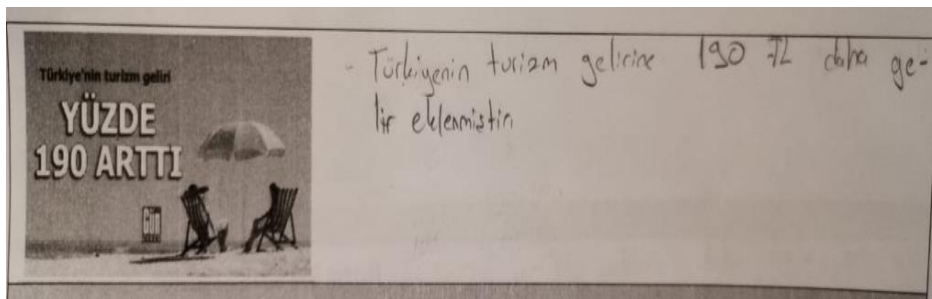 Türkiye'nin turizm geliri
YÜZDE
190 ARTTI
GÜN
- Türkiyenin turizm gelirine 190 TL daha ge-
lir eklenmiştir.